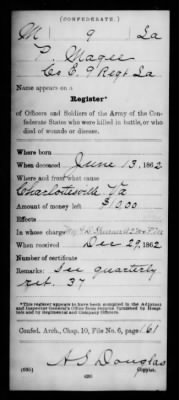 (CONFEDERATE.)
M 9 La
P. Magee
Co E, 9 Regt La
Name appears on a
Register*
of Officers and Soldiers of the Army of the Confederate
States who were killed in battle, or who
died of wounds or disease.
Where born
When deceased June 13, 1862
Where and from what cause
Charlottesville Va
Amount of money left $10.00
Effects
In whose charge
When received Dec 29, 1862
Number of certificate
Remarks: See quarterly
ret. 37
*This register appears to have been compiled in the Adjutant
and Inspector General's Office from returns furnished by Hospitals
and by Regimental and Company Officers.
Confed. Arch., Chap. 10, File No. 6, page 161
A S Douglas
(635) Copyist.